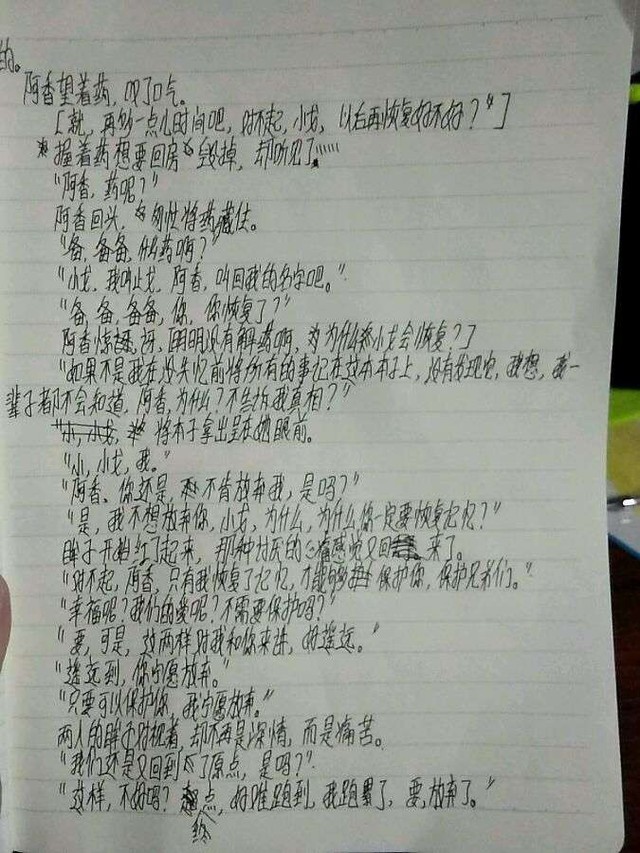 的。
阿香望着药，叹了口气。
[就，再多一点儿时间吧，对不起，小戈，以后再恢复好不好？"]
握着药想要回房 毁掉，却听见了……
"阿香，药呢？"
阿香回头， 匆忙将药藏住。
"备，备备，什么药啊？"
"小戈，我叫小戈，阿香，叫回我的名字吧。"
"备，备，备备，你，你恢复了？"
阿香惊讶，[明明没有解药啊，为什么小戈会恢复？]
"如果不是我在没失忆前将所有的事记在这本本子上，没有发现它，我想，我一
辈子都不会知道，阿香，为什么？不告诉我真相？"
将本子拿出呈在她眼前。
"小，小戈，我。"
"阿香，你还是，不肯放弃我，是吗？"
"是，我不想放弃你，小戈，为什么，为什么你一定要恢复记忆？"
眸子开始红了起来，那种讨厌的心痛感觉又回来了。
"对不起，阿香，只有我恢复了记忆，才能够保护你，保护兄弟们。"
"幸福呢？我们的爱呢？不需要保护吗？"
"要，可是，这两样对我和你来讲，好遥远。"
"遥远到，你宁愿放弃。"
"只要可以保护你，我宁愿放弃。"
两人的眸子对视着，却不再是深情，而是痛苦。
"我们还是又回到了原点，是吗？"
"这样，不好吗？终点，好难跑到，我跑累了，要放弃了。"